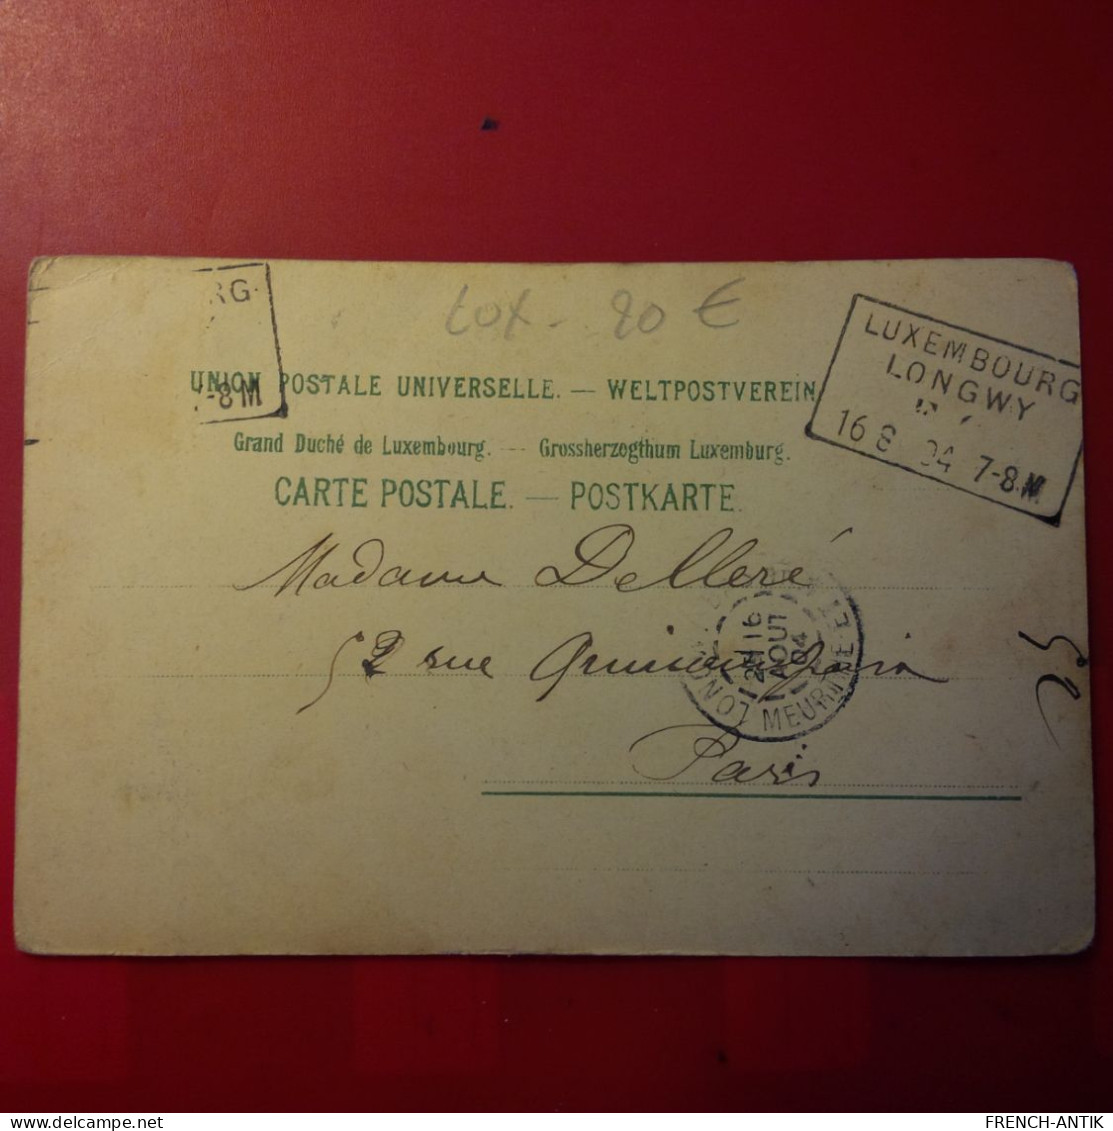 RG
-8 M
LUX - 20 €
LUXEMBOURG
LONGWY
16 8 04 7-8.M
UNION POSTALE UNIVERSELLE. — WELTPOSTVEREIN
Grand Duché de Luxembourg. — Grossherzogthum Luxemburg.
CARTE POSTALE. — POSTKARTE.
Madame Delleré
52 rue
Paris
16
AOUT
04
MEURTHE-ET
52
FRENCH-ANTIK